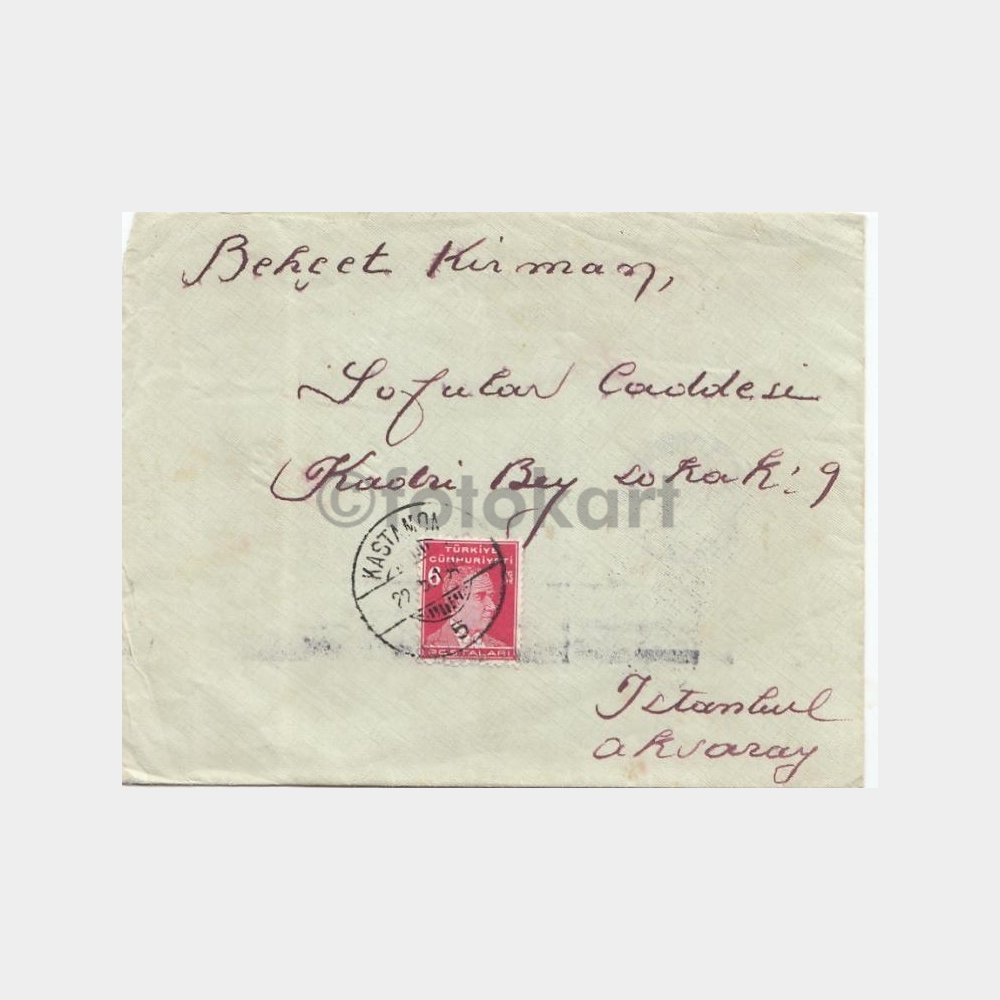 Behçet Kirman,
Sofular Caddesi
Kadri Bey sokak: 9
©fotokart
KASTAMON
TÜRKİYE
CÜMHURİYETİ
6
POSTALARI
İstanbul
aksaray